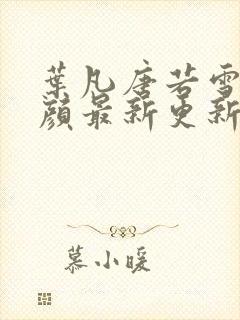 葉凡唐若雪
顏最新更新
慕小暖